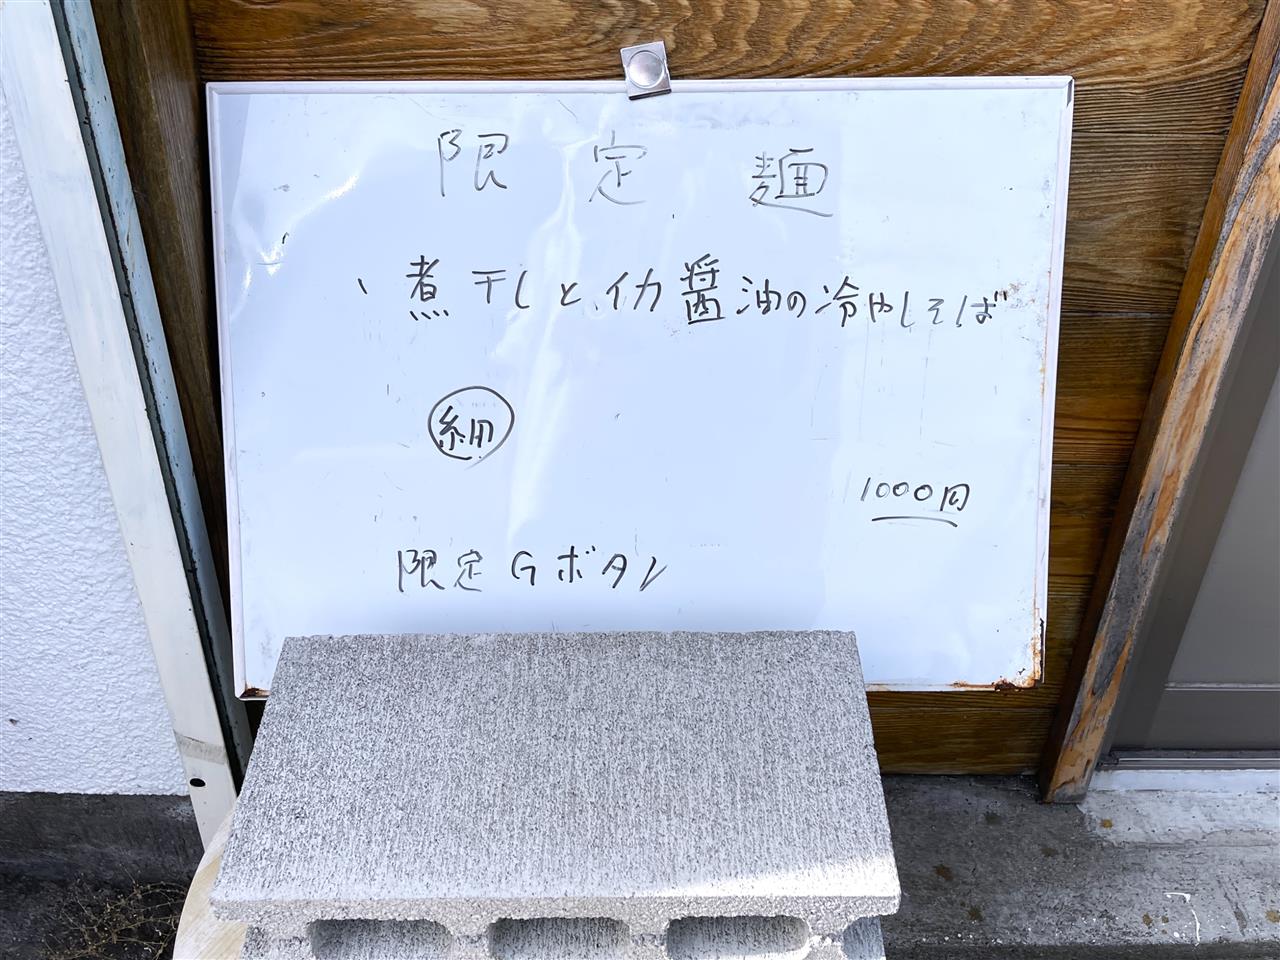 限定麺
、煮干しとイカ醤油の冷やしそば
細
1000円
限定Gボタン